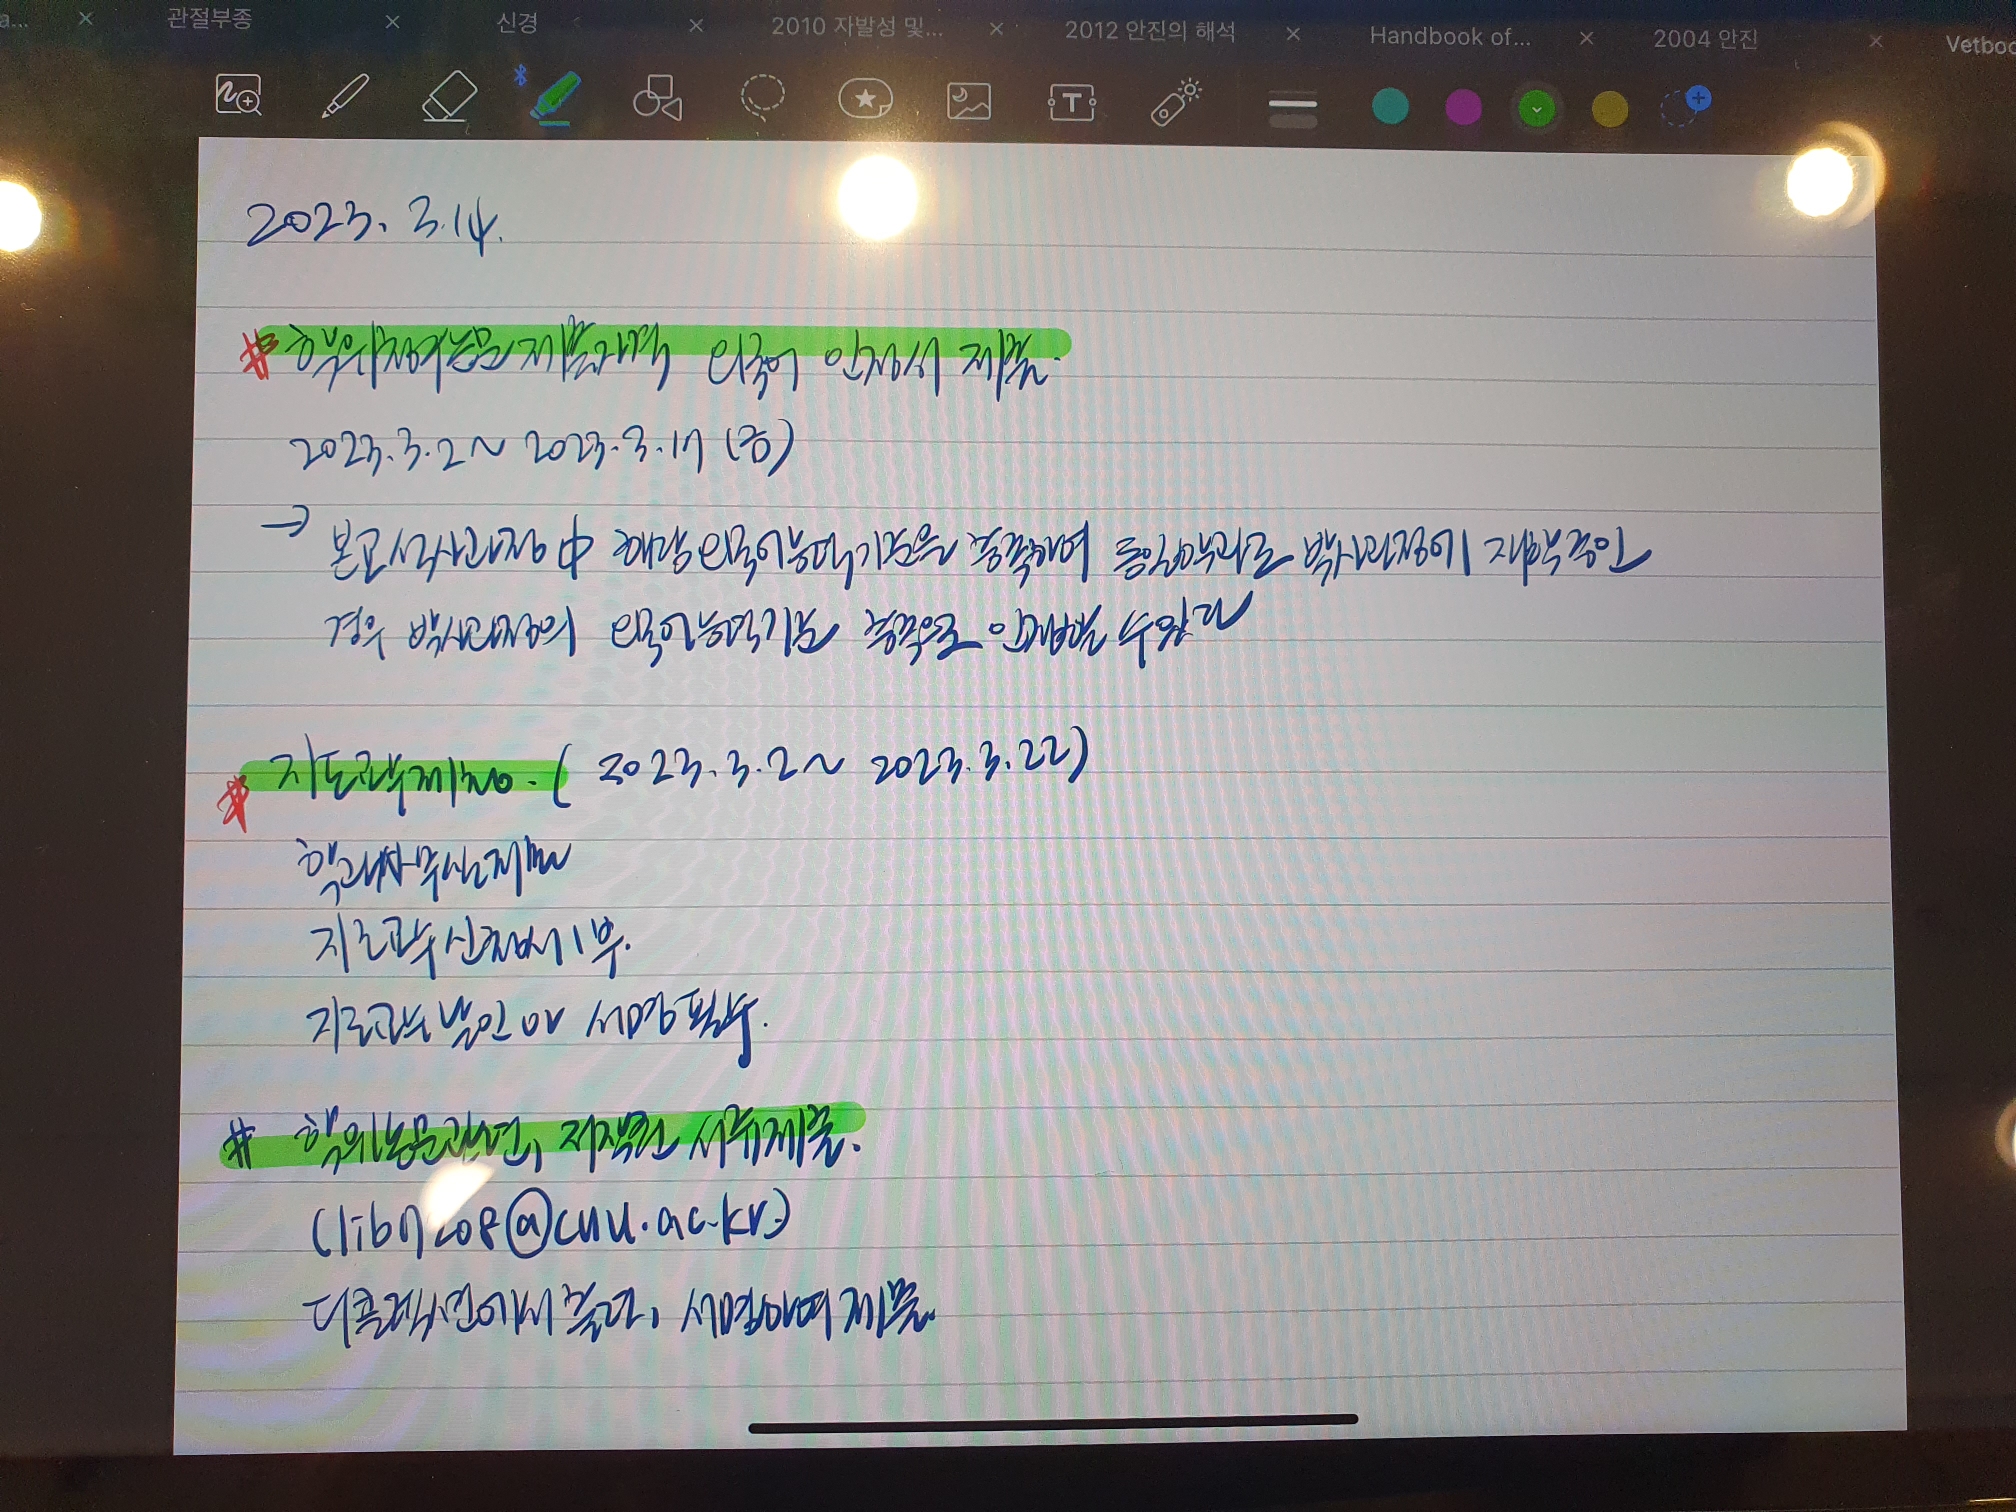 관절부종 × 신경 × 2010 자발성 및... × 2012 안진의 해석 × Handbook of... × 2004 안진 × Vetboo
2023. 3.14.
# 학위청구논문 제출자격 외국어 인정서 제출.
2023.3.2 ~ 2023.3.17 (금)
→ 본교 석사과정 中 해당 외국어능력기준을 충족하여 동일학과로 박사과정에 재학중인
경우 박사과정의 외국어능력기준 충족으로 인정받을 수 있다
# 지도교수제청. ( 2023.3.2 ~ 2023.3.22)
학과사무실 제출
지도교수신청서 1부.
지도교수 날인 or 서명 필수.
# 학위논문관련, 저작권 서류제출.
@cnu.ac.kr)
디콜렉션에서 출력, 서명하여 제출.